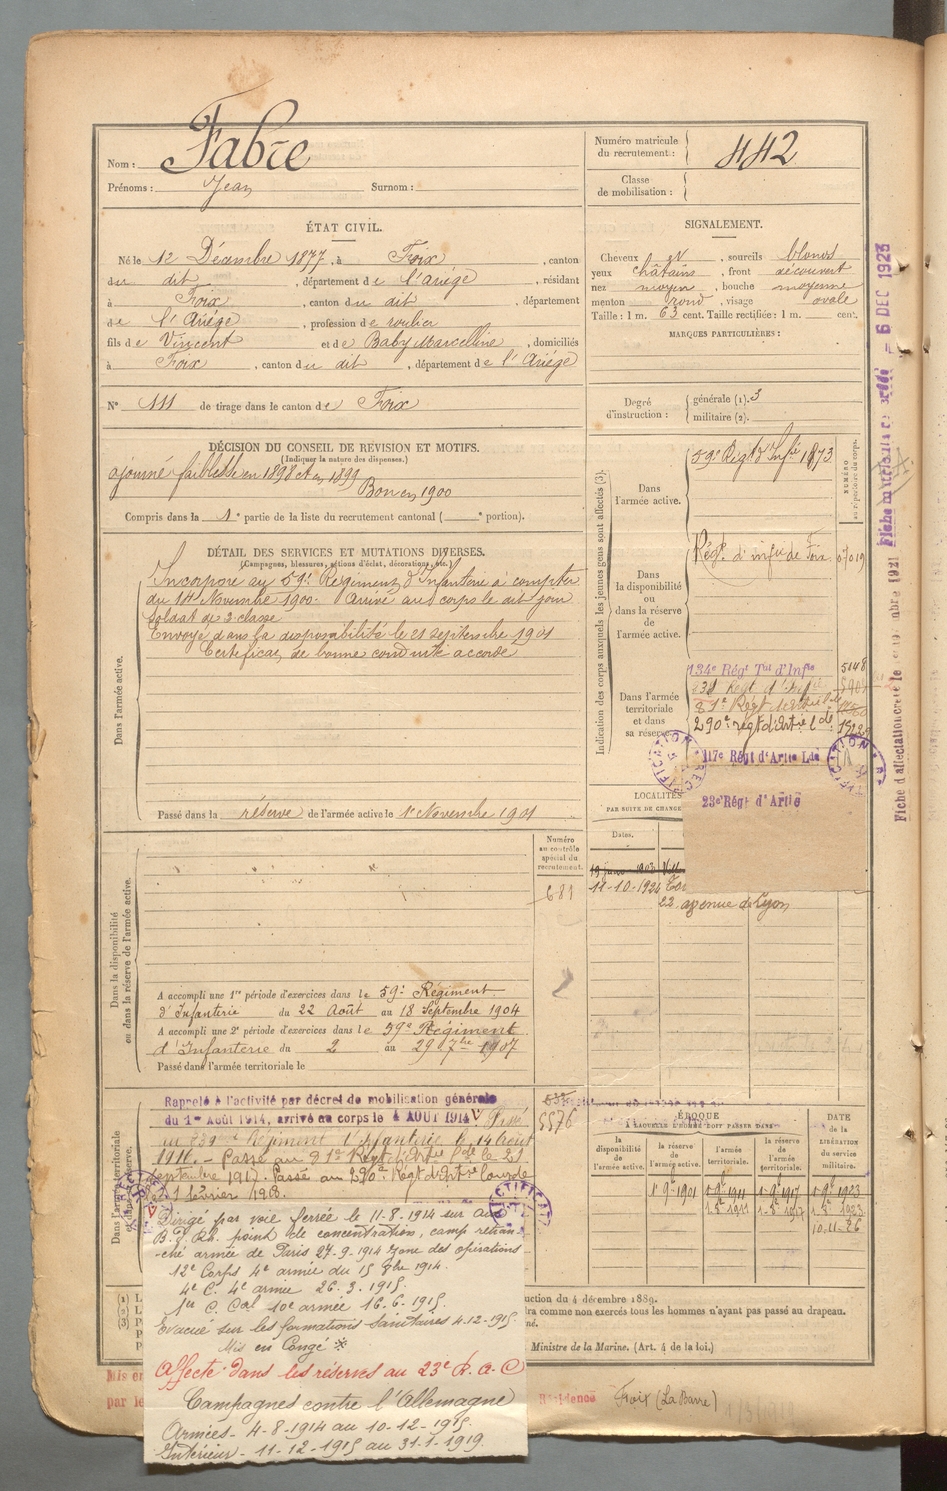 Nom : Fabre
Prénoms : Jean Surnom :
Numéro matricule
du recrutement : 442
Classe
de mobilisation :
ÉTAT CIVIL.
Né le 12 Décembre 1877, à Foix, canton
du dit, département de l'Ariège, résidant
à Foix, canton du dit, département
de l'Ariège, profession de roulier
fils de Vincent et de Baby Marcelline, domiciliés
à Foix, canton du dit, département de l'Ariège
N° 111 de tirage dans le canton de Foix
SIGNALEMENT.
Cheveux sourcils blonds
yeux châtains, front découvert
nez moyen, bouche moyenne
menton rond, visage ovale
Taille : 1 m. 63 cent. Taille rectifiée : 1 m. cent.
MARQUES PARTICULIÈRES :
Degré
d'instruction :
générale (1). 3
militaire (2).
DÉCISION DU CONSEIL DE REVISION ET MOTIFS.
(Indiquer la nature des dispenses.)
ajourné faiblesse en 1898 et en 1899
Bon en 1900
Compris dans la 1e partie de la liste du recrutement cantonal ( e portion).
DÉTAIL DES SERVICES ET MUTATIONS DIVERSES.
(Campagnes, blessures, actions d'éclat, décorations, etc.)
Dans l'armée active.
Incorporé au 59e Régiment d'Infanterie à compter
du 14 Novembre 1900. Arrivé au corps le dit jour
Soldat de 2e classe
Envoyé dans la disponibilité le 21 septembre 1901
Certificat de bonne conduite accordé
Passé dans la réserve de l'armée active le 1er Novembre 1901
Indication des corps auxquels les jeunes gens sont affectés (3).
NUMÉRO
au répertoire du corps.
Dans
l'armée active.
59e Régt d'Infie 1873
Dans
la disponibilité
ou
dans la réserve
de
l'armée active.
Régt d'infie de Foix
Dans l'armée
territoriale
et dans
sa réserve
134e Régt Tal d'Infie 5148
81e Régt
290e régt d'Artie Lde
117e Régt d'Artie Lde
23e Régt d'Artie
LOCALITÉS
PAR SUITE DE CHANGE
Dates.
11-10-1924
22 avenue de Lyon
Numéro
au contrôle
spécial du
recrutement.
681
Dans la disponibilité
ou dans la réserve de l'armée active.
A accompli une 1re période d'exercices dans le 59e Régiment
d'Infanterie du 22 Août au 18 Septembre 1904
A accompli une 2e période d'exercices dans le 59e Régiment
d'Infanterie du 2 au 29 7bre 1907
Passé dans l'armée territoriale le
Dans l'armée territoriale
Rappelé à l'activité par décret de mobilisation générale
du 1er Août 1914, arrivé au corps le 4 AOUT 1914 Passé
au Régiment d'Infanterie le 14 Août
1916. - Passé au 81e Régt d'Artie Lde le 21
septembre 1917. Passé au 290e Régt d'Artie lourde
1 février 1918.
5576
Dirigé par voie ferrée le 11-8-1914 sur
point de concentration, camp retran-
-ché armée de Paris 27-9-1914 zone des opérations
12e Corps 4e armée du 15 8bre 1914.
4e C. 4e armée 26.3.1915.
1er C. Cal 10e armée 16-6-1915.
Evacué sur les formations Sanitaires 4-12-1915
Mis en Congé *
Affecté dans les réserves au 23e R.A.C
Campagnes contre l'Allemagne
Armées - 4-8-1914 au 10-12-1915.
Intérieur - 11-12-1915 au 31-1-1919.
ÉPOQUE
À LAQUELLE L'HOMME DOIT PASSER DANS
DATE
de la
LIBÉRATION
du service
militaire.
la
disponibilité
de
l'armée active.
la réserve
de
l'armée active.
l'armée
territoriale.
la réserve
de
l'armée
territoriale.
1-9-1901 1-9-1911 1-9-1917 1-9-1923
10-11-26
ction du 4 décembre 1889.
dra comme non exercés tous les hommes n'ayant pas passé au drapeau.
Ministre de la Marine. (Art. 4 de la loi.)
Mis en
par le
Résidence Foix (La Barre)
6 DEC 1923
Fiche d'affectation créée le